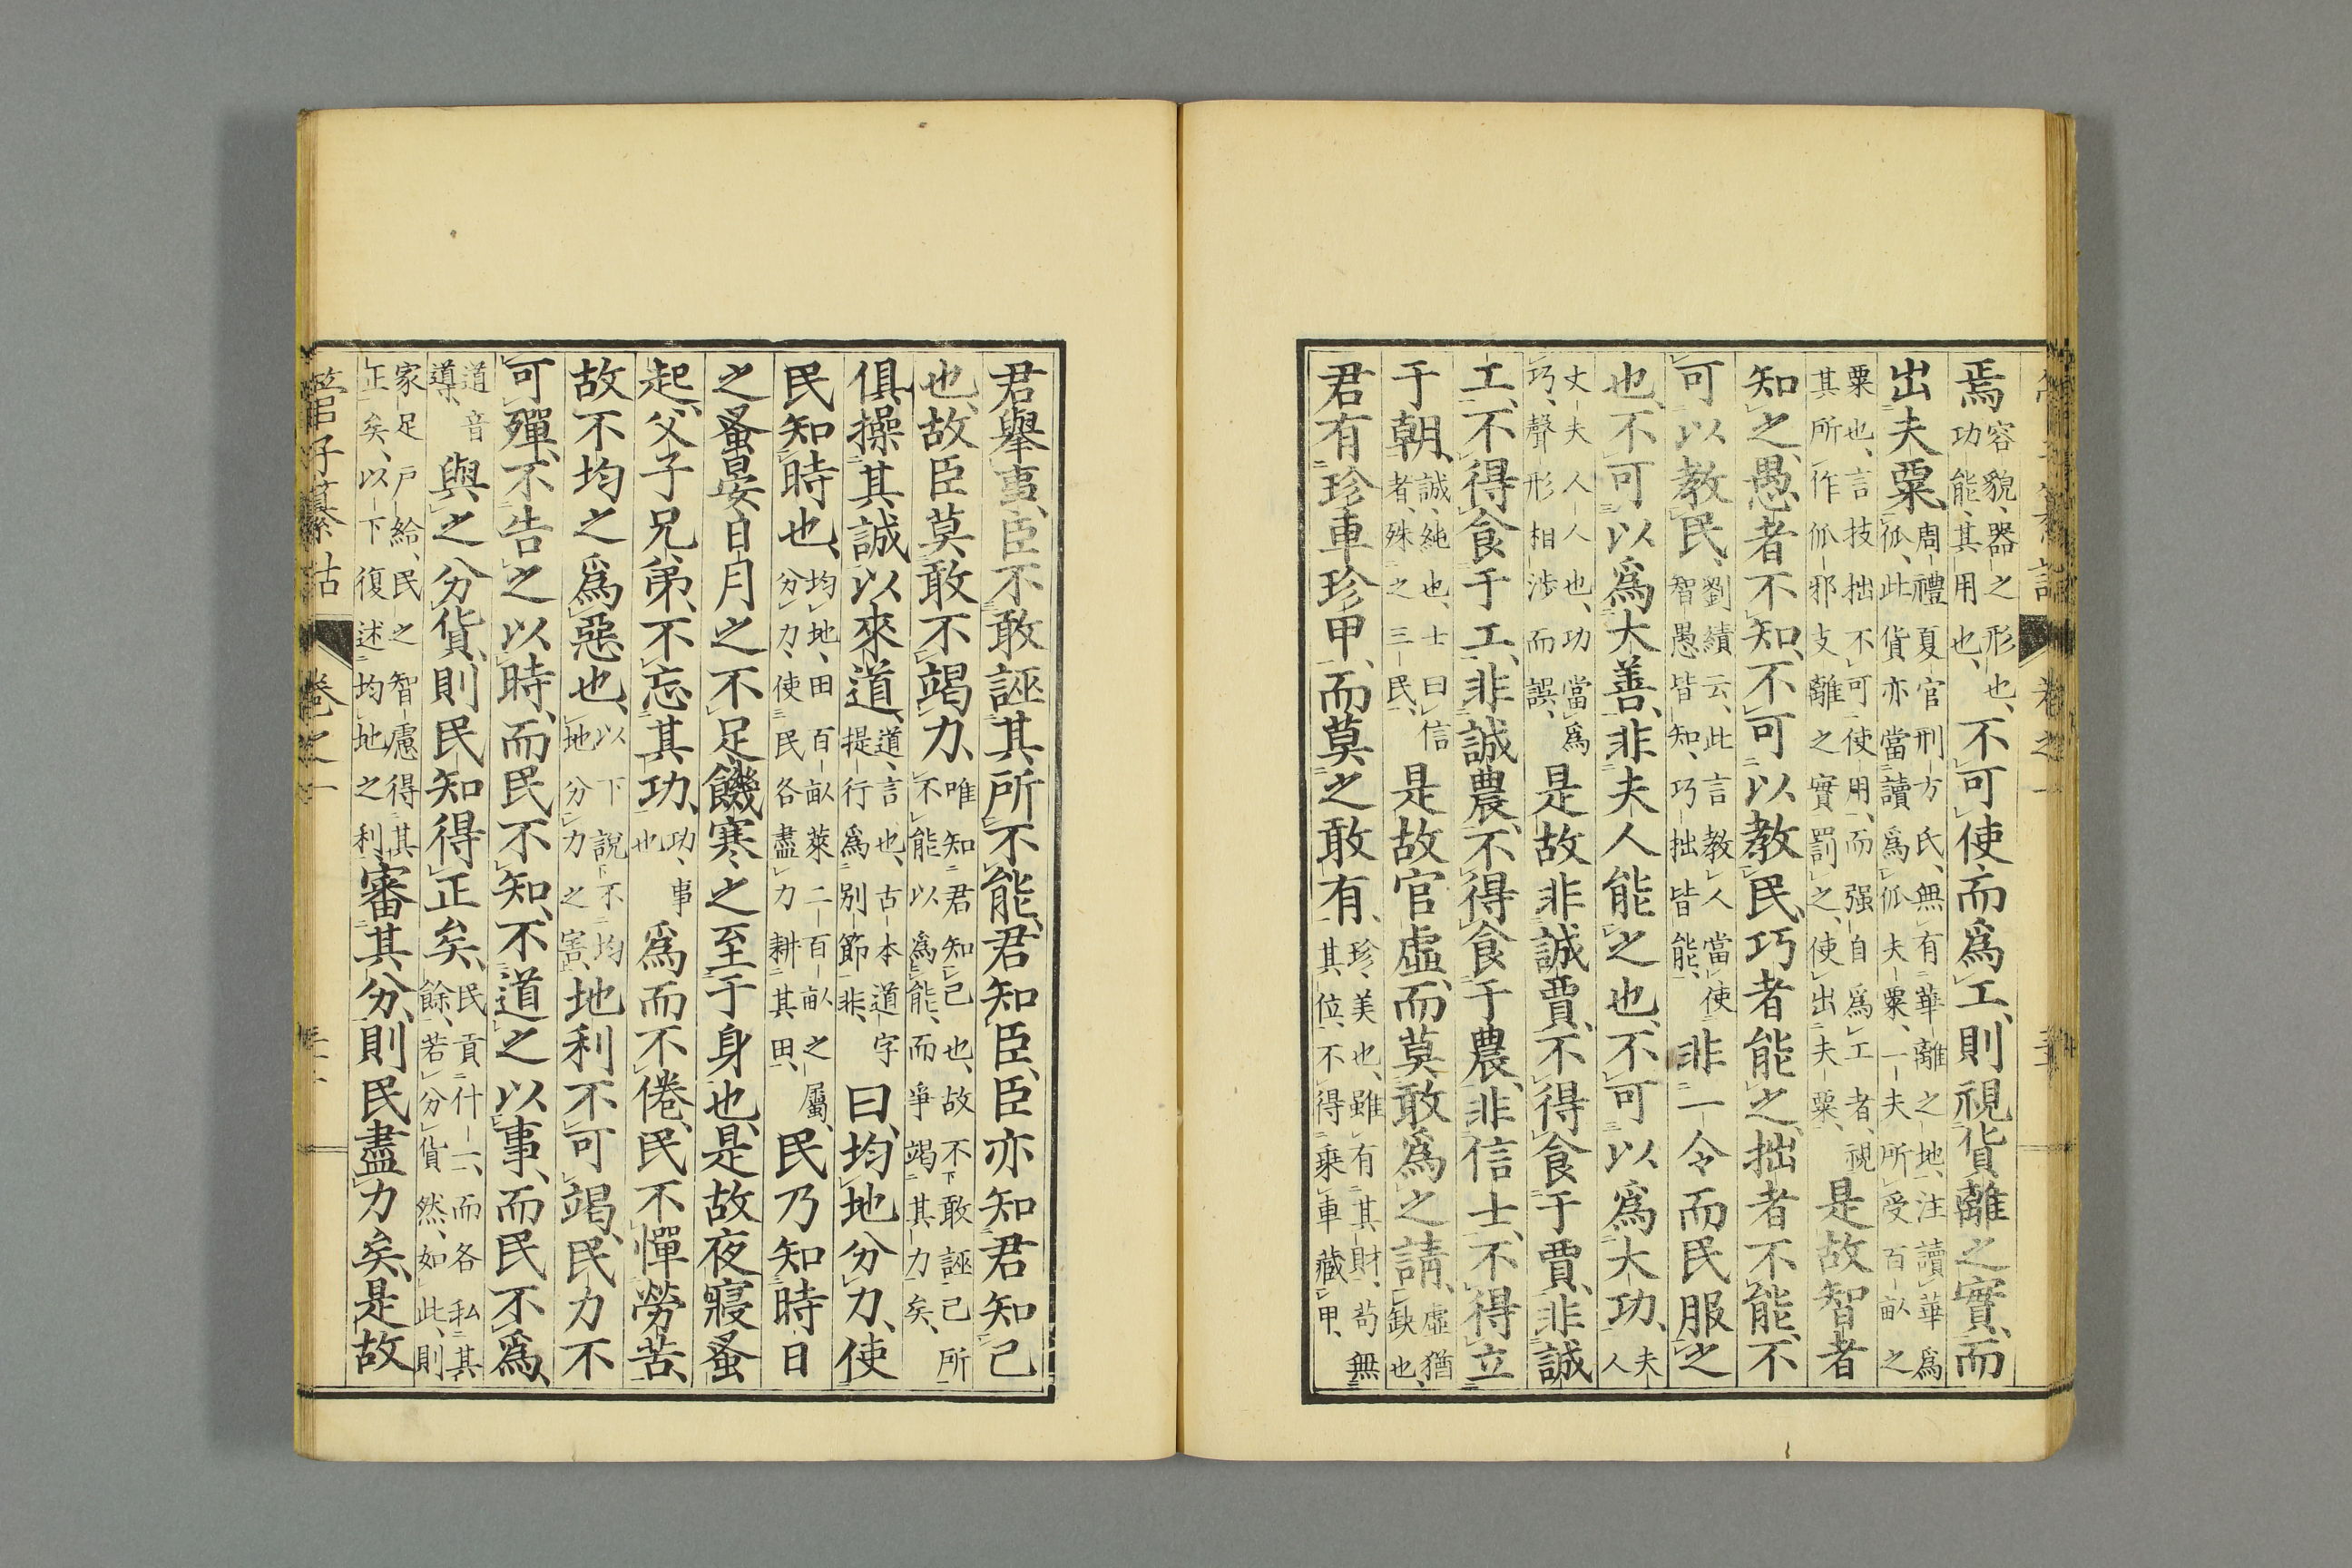 焉容貌、器之形也、功能、其用也、不可使而爲工、則視貨離之實、而
出夫粟、周禮夏官刑方氏、無有華離之地、注讀華爲㼌、此貨亦當讀爲㼌、夫粟、一夫所受百畝之
粟也、言技拙不可使用、而强自爲工者、視其所作㼌邪支離之實罰之、使出夫粟、是故智者
知之、愚者不知、不可以教民、巧者能之、拙者不能、不
可以教民、劉績云、此言教人當使智愚皆知、巧拙皆能、非一令而民服之
也、不可以爲大善、非夫人能之也、不可以爲大功、夫人
丈夫人人也、功當爲巧、聲形相涉而誤、是故非誠賈、不得食于賈、非誠
工、不得食于工、非誠農、不得食于農、非信士、不得立
于朝、誠、純也、士曰信者、殊之三民、是故官虛、而莫敢爲之請、虛猶缺也、
君有珍車珍甲、而莫之敢有、珍、美也、雖有其財、苟無其位、不得乘車藏甲、
君舉事、臣不敢誣其所不能、君知臣、臣亦知君知己
也、故臣莫敢不竭力、唯知君知己也、故不敢誣己所不能以爲能、而爭竭其力矣、
俱操其誠以來、道、道、言也、古本道字提行爲別節、非、曰、均地分力、使
民知時也、均地、田百畝萊二百畝之屬、分力、使民各盡力耕其田、民乃知時日
之蚤晏、日月之不足、饑寒之至于身也、是故夜寢蚤
起、父子兄弟、不忘其功、功、事也爲而不倦、民不憚勞苦、
故不均之爲惡也、以下說不均地分力之害、地利不可竭、民力不
可殫、不告之以時、而民不知、不道之以事、而民不爲、
道音導、與之分貨、則民知得正矣、民貢什一、而各私其餘、若分貨然、如此、則
家足戶給、民之智慮得其正矣、以下復述均地之利、審其分、則民盡力矣、是故
管子纂詁 卷之一